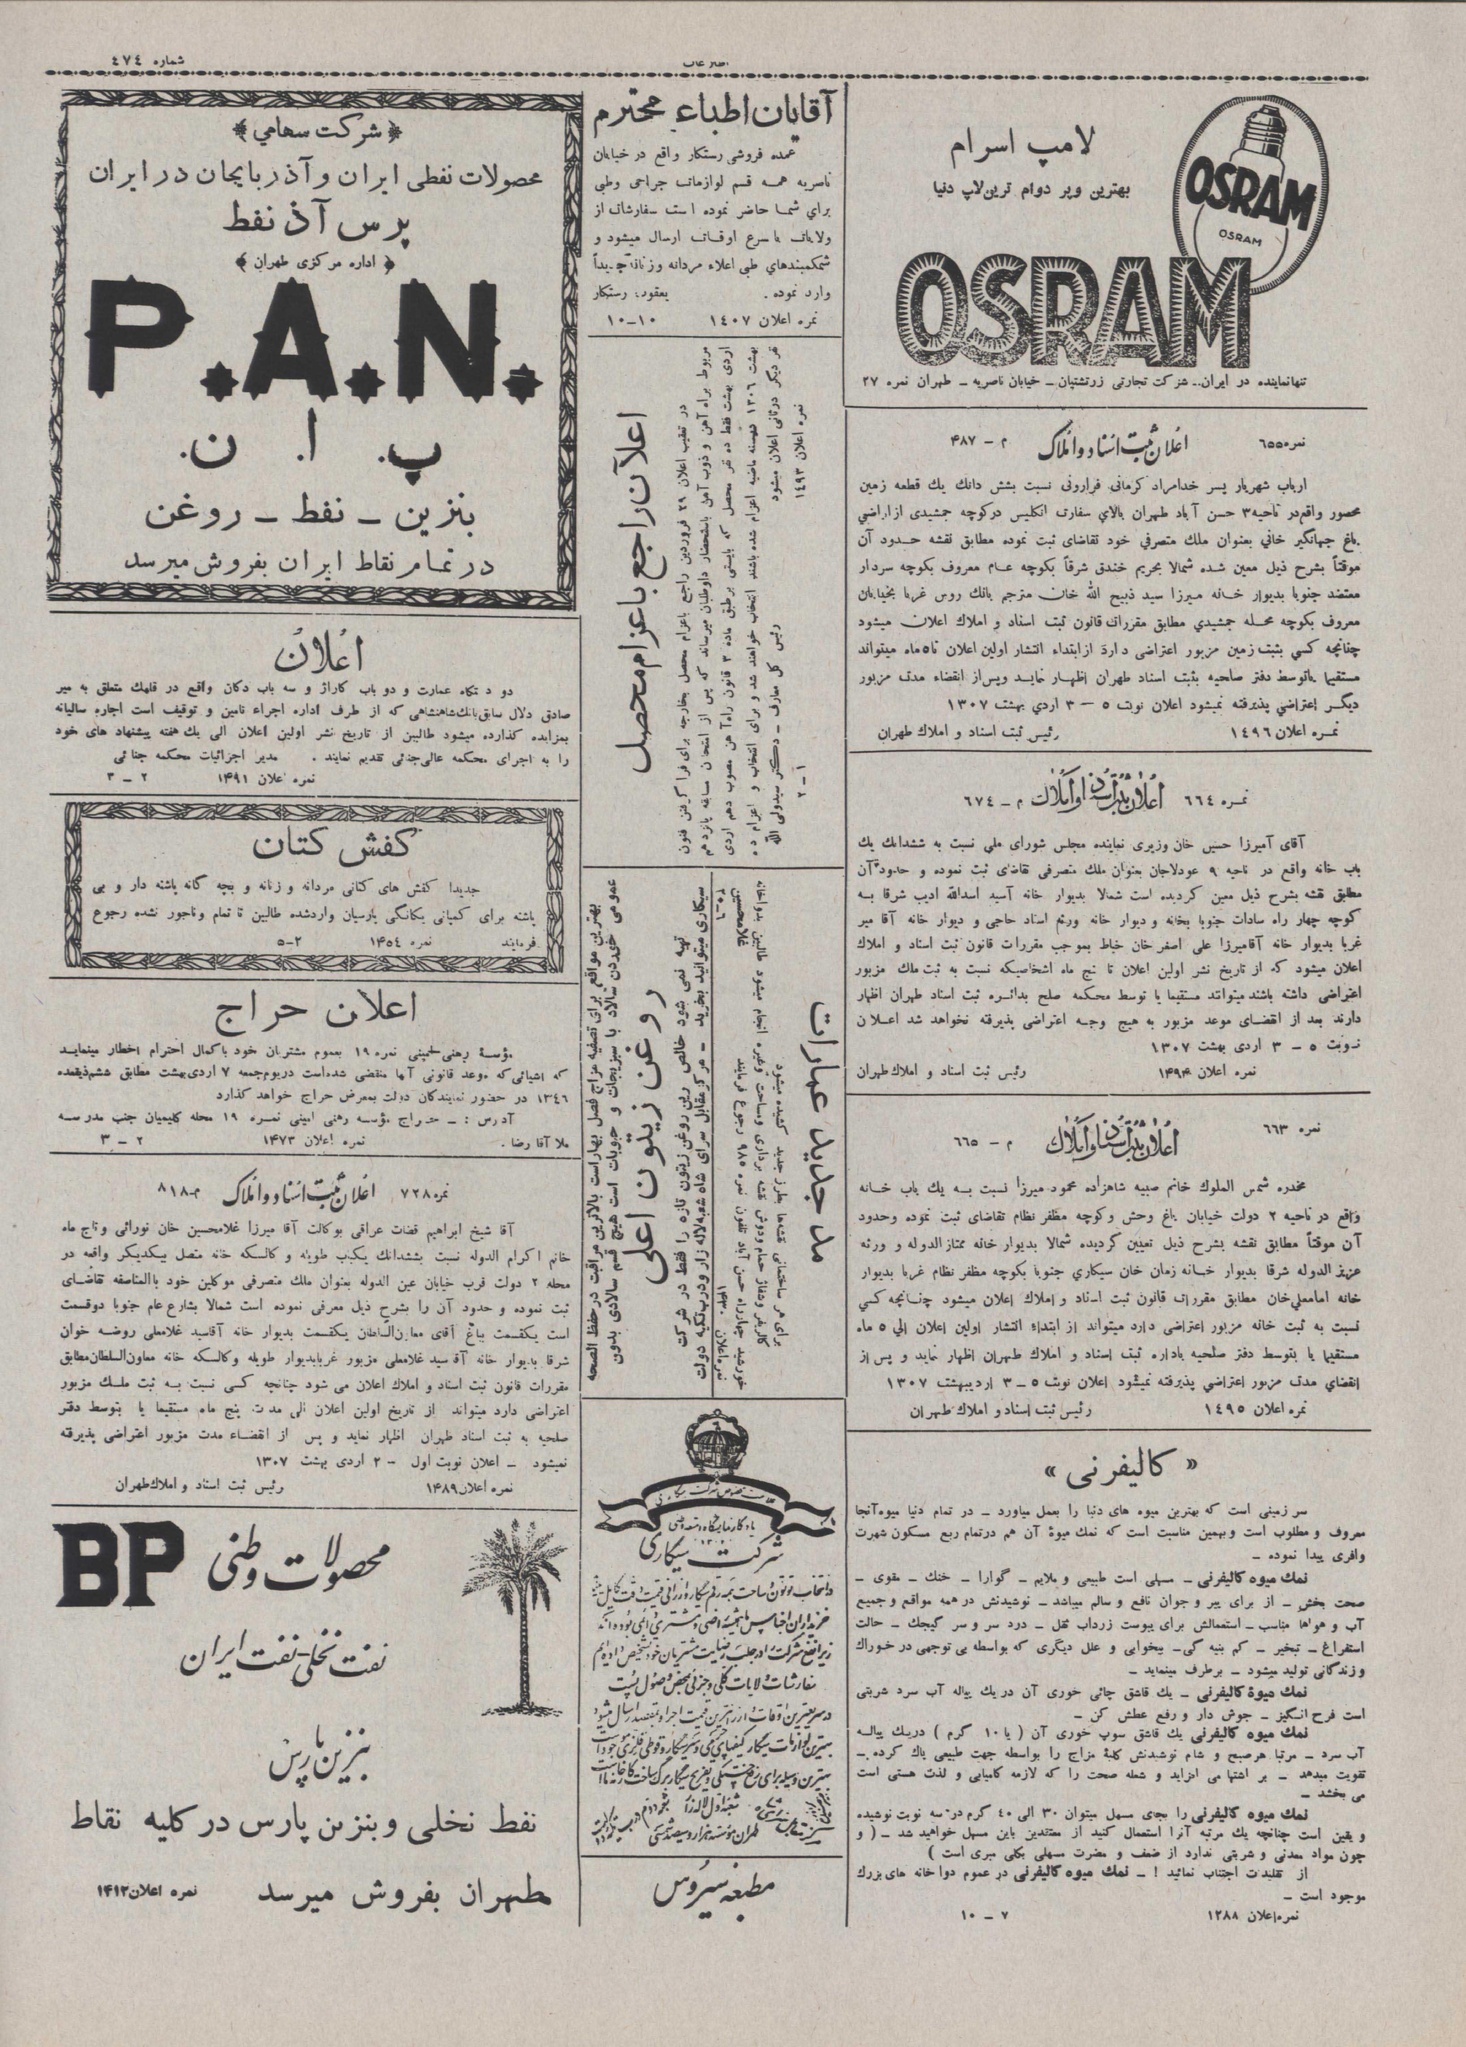 شماره ٤٧٤
اطلاعات
لامپ اسرام
بهترین وپر دوام ترین لاپ دنیا
OSRAM
OSRAM
OSRAM
تنها نماینده در ایران.. شرکت تجارتی زرتشتیان – خیابان ناصریه – طهران نمره ٢٧
نمره ٦٥٥ اعلان ثبت اسناد و املاک م – ۴۸۷
ارباب شهریار پسر خدامراد کرمانی فرارونی نسبت بشش دانك يك قطعه زمین
محصور واقع در ناحیه ۳ حسن آباد طهران بالای سفارت انگلیس در کوچه جمشیدی از اراضي
باغ جهانگیر خانی بعنوان ملك متصرفي خود تقاضای ثبت نموده مطابق نقشه حدود آن
موقتاً بشرح ذیل معین شده شمالا بحریم خندق شرقاً بکوچه عام معروف بکوچه سردار
معتضد جنوبا بدیوار خانه میرزا سید ذبیح الله خان مترجم بانك روس غربا بخیابان
معروف بکوچه محله جمشیدي مطابق مقررات قانون ثبت اسناد و املاك اعلان میشود
چنانچه کسي بثبت زمین مزبور اعتراضی دارد از ابتداء انتشار اولین اعلان تا ٥ ماه میتواند
مستقیما یا توسط دفتر صلحیه بثبت اسناد طهران اظهار نماید و پس از انقضاء مدت مزبور
دیگر اعتراضي پذیرفته نمیشود اعلان نوبت ٥ – ٣ اردي بهشت ١٣٠٧
نمره اعلان ١٤٩٦ رئیس ثبت اسناد و املاك طهران
نمره ٦٦٤ اعلان ثبت اسناد و املاک م – ٦٧٤
آقای آمیرزا حسین خان وزیری نماینده مجلس شورای ملي نسبت به ششدانك يك
باب خانه واقع در ناحیه ٩ عودلاجان بعنوان ملك متصرفی تقاضای ثبت نموده و حدود آن
مطابق نقشه بشرح ذیل معین گردیده است شمالا بدیوار خانه آسید اسدالله ادیب شرقا به
کوچه چهار راه سادات جنوبا بخانه و دیوار خانه ورثم استاد حاجی و دیوار خانه آقا میر
غربا بدیوار خانه آقامیرزا علی اصغر خان خیاط بموجب مقررات قانون ثبت اسناد و املاك
اعلان میشود که از تاریخ نشر اولین اعلان تا پنج ماه اشخاصیکه نسبت به ثبت ملك مزبور
اعتراضی داشته باشند میتوانند مستقیما یا توسط محکمه صلح بدائره ثبت اسناد طهران اظهار
دارند بعد از انقضای موعد مزبور به هیچ وجه اعتراضی پذیرفته نخواهد شد اعلان
نوبت ٥ – ٣ اردی بهشت ١٣٠٧
نمره اعلان ١٤٩۴ رئیس ثبت اسناد و املاك طهران
نمره ٦٦٣ اعلان ثبت اسناد و املاک م – ٦٦٥
مخدره شمس الملوك خانم صبیه شاهزاده محمود میرزا نسبت به يك باب خانه
واقع در ناحیه ٢ دولت خیابان باغ وحش و کوچه مظفر نظام تقاضای ثبت نموده وحدود
آن موقتاً مطابق نقشه بشرح ذیل تعیین گردیده شمالا بدیوار خانه ممتاز الدوله و ورثه
عزیز الدوله شرقا بدیوار خانه زمان خان سیکاری جنوبا بکوچه مظفر نظام غربا بدیوار
خانه امامعلی خان مطابق مقررات قانون ثبت اسناد و املاك اعلان میشود چنانچه کسي
نسبت به ثبت خانه مزبور اعتراضی دارد میتواند از ابتداء انتشار اولین اعلان الی ٥ ماه
مستقیما یا بتوسط دفتر صلحیه باداره ثبت اسناد و املاك طهران اظهار نماید و پس از
انقضای مدت مزبور اعتراضی پذیرفته نمیشود اعلان نوبت ٥ – ٣ اردیبهشت ١٣٠٧
نمره اعلان ١٤٩٥ رئیس ثبت اسناد و املاك طهران
« کالیفرنی »
سرزمینی است که بهترین میوه های دنیا را بعمل میاورد – در تمام دنیا میوه آنجا
معروف و مطلوب است و بهمین مناسبت است که نمك میوهٔ آن هم در تمام ربع مسکون شهرت
وافری پیدا نموده –
نمك میوه کالیفرنی – مسهلی است طبیعی و ملایم – گوارا – خنك – مقوی –
صحت بخش – از برای پیر و جوان نافع و سالم میباشد – نوشیدنش در همه مواقع و جمیع
آب و هواها مناسب – استعمالش برای یبوست زرداب ثقل – درد سر و سر گیجك – حالت
استفراغ – تبخیر – کم بنیه گی – بیخوابی و علل دیگری که بواسطه بی توجهی در خوراك
و زندگانی تولید میشود – برطرف مینماید –
نمك میوهٔ کالیفرنی – يك قاشق چائی خوری آن در يك پیاله آب سرد شربتی
است فرح انگیز – جوش دار و رفع عطش کن –
نمك میوه کالیفرنی يك قاشق سوپ خوری آن ( یا ١٠ گرم ) در يك پیاله
آب سرد – مرتبا هر صبح و شام نوشیدنش کلیهٔ مزاج را بواسطه جهت طبیعی پاك کرده –
تقویت میدهد – بر اشتها می افزاید و شعله صحت را که لازمه کامیابی و لذت هستی است
می بخشد –
نمك میوه کالیفرنی را بجای مسهل میتوان ٣٠ الی ٤٠ گرم در سه نوبت نوشیده
و یقین است چنانچه يك مرتبه آنرا استعمال کنید از معتقدین باین مسهل خواهید شد – ( و
چون مواد معدنی و شربتی ندارد از ضعف و مضرت مسهلی بکلی مبری است )
از تقلیدات اجتناب نمائید ! – نمك میوه کالیفرنی در عموم دوا خانه های بزرك
موجود است –
نمره اعلان ١٢٨٨ ٧ – ١٠
آقایان اطباء محترم
عمده فروشی رستکار واقع در خیابان
ناصریه همه قسم لوازمات جراحی وطبی
برای شما حاضر نموده است سفارشات از
ولایات باسرع اوقات ارسال میشود و
شکمبندهای طبی اعلاء مردانه و زنانه جدیداً
وارد نموده . یعقوب رستکار
نمره اعلان ١٤٠٧ ١٠–١٠
اعلان راجع باعزام محصل
در تعقیب اعلان ٢٩ فروردین راجع باعزام محصل بخارجه برای فرا گرفتن فنون
مربوط براه آهن و ذوب آهن باستحضار داوطلبان میرساند که پس از امتحان مسابقه پانزدهم
اردی بهشت فقط ده نفر محصل که بایستی بر طبق ماده ٣ قانون راه آهن مصوب دهم اردی
بهشت ١٣٠٦ اعزام شده باشند انتخاب خواهند شد و برای انتخاب و اعزام ده
نفر دیگر در ثانی اعلان میشود رئیس کل معارف – دکتر سید ولی الله
نمره اعلان ١٤٩٣ ١ – ٢
مد جدید عمارات
برای هر ساختمانی نقشه‌ها بطرز جدید کشیده میشود
کالریفر و شفاژ حمام و دوش نقشه برداری و مساحت و غیره انجام میشود طالبین بدواخانه
خورشید چهارراه حسن آباد تلفون نمره ٩٨٥ رجوع فرمایند غلامحسین
نمره اعلان ١٤٣٠
روغن زیتون اعلی
بهترین مواقع برای تصفیه مزاج فصل بهار است بالاترین مراقبت در حفظ الصحه
عمومی خوردن سالاد با سبزیجات و حبوبات است هیچ قسم سالادی بدون
تهیه نمی شود خالص ترین روغن زیتون تازه را فقط در شرکت
سیکاری میتوانید بخرید – مرکز مقابل سرای شاه شعبه لاله زار و درب تکیه دولت
شرکت سیگاری
سفارشات ولایات کلی و جزئی بمحض وصول پست
مطبعه سیروس
﴿ شرکت سهامي ﴾
محصولات نفطی ایران و آذربایجان در ایران
پرس آذ نفط
﴿ اداره مرکزی طهران ﴾
P.A.N.
پ. ا. ن.
بنزین – نفط – روغن
در تمام نقاط ایران بفروش میرسد
اعلان
دو دستگاه عمارت و دو باب کاراژ و سه باب دکان واقع در قلهك متعلق به میر
صادق دلال سابق بانك شاهنشاهی که از طرف اداره اجراء تامین و توقیف است اجاره سالیانه
بمزایده گذارده میشود طالبین از تاریخ نشر اولین اعلان الی يك هفته پیشنهاد های خود
را به اجرای محکمه عالی جنائی تقدیم نمایند . مدیر اجرائیات محکمه جنائی
نمره اعلان ١٤٩١ ٢ – ٣
کفش کتان
جدیدا کفش های کتانی مردانه و زنانه و بچه گانه پاشنه دار و بی
پاشنه برای کمپانی یکانگی پارسیان وارد شده طالبین تا تمام و ناجور نشده رجوع
فرمایند نمره ١٤٥٤ ٢–٥
اعلان حراج
مؤسسهٔ رهنی خمینی نمره ١٩ بعموم مشتریان خود باکمال احترام اخطار مینماید
که اشیائی که موعد قانونی آنها منقضی شده است در یوم جمعه ٧ اردی بهشت مطابق ششم ذیقعده
١٣٤٦ در حضور نمایندگان دولت بمعرض حراج خواهد گذارد
آدرس : – حراج مؤسسه رهنی امینی نمره ١٩ محله کلیمیان جنب مدرسه
ملا آقا رضا . نمره اعلان ١٤٧٣ ٢ – ٣
نمره ٧٢٨ اعلان ثبت اسناد و املاک م–٨١٨
آقا شیخ ابراهیم قضات عراقی بوکالت آقا میرزا غلامحسین خان نورائی و تاج ماه
خانم اکرام الدوله نسبت بششدانك یکباب طویله و کالسکه خانه متصل بیکدیگر واقعه در
محله ٢ دولت قرب خیابان عین الدوله بعنوان ملك متصرفی موکلین خود بالمناصفه تقاضای
ثبت نموده و حدود آن را بشرح ذیل معرفی نموده است شمالا بشارع عام جنوبا دو قسمت
است یکقسمت بباغ آقای معاون السلطان یکقسمت بدیوار خانه آقاسید غلامعلی روضه خوان
شرقا بدیوار خانه آقا سید غلامعلی مزبور غربا بدیوار طویله و کالسکه خانه معاون السلطان مطابق
مقررات قانون ثبت اسناد و املاك اعلان می شود چنانچه کسی نسبت به ثبت ملك مزبور
اعتراضی دارد میتواند از تاریخ اولین اعلان الی مدت پنج ماه مستقیما یا بتوسط دفتر
صلحیه به ثبت اسناد طهران اظهار نماید و پس از انقضاء مدت مزبور اعتراضی پذیرفته
نمیشود – اعلان نوبت اول – ٢ اردی بهشت ١٣٠٧
نمره اعلان ١٤٨٩ رئیس ثبت اسناد و املاك طهران
BP محصولات وطنی
نفت نخلی – نفت ایران
بنزین پارس
نفط نخلی و بنزین پارس در کلیه نقاط
طهران بفروش میرسد نمره اعلان ١٤١٣